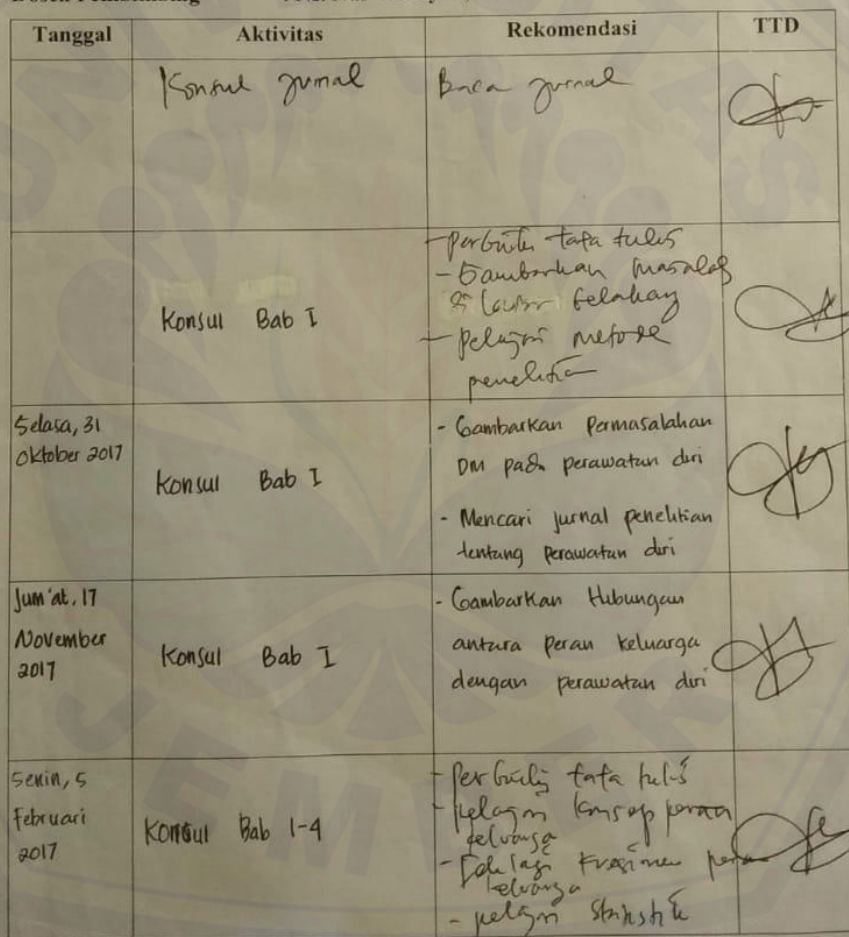 Tanggal Aktivitas Rekomendasi TTD
Konsul Jurnal
Baca jurnal
Konsul Bab I
- Perbaiki tata tulis
- Gambarkan masalah
di latar belakang
- Pelajari metode
penelitian
Selasa, 31
Oktober 2017
Konsul Bab I
- Gambarkan Permasalahan
DM pada perawatan diri
- Mencari jurnal penelitian
tentang perawatan diri
Jum'at, 17
November
2017
Konsul Bab I
- Gambarkan Hubungan
antara peran keluarga
dengan perawatan diri
Senin, 5
Februari
2017
Konsul Bab 1-4
- Perbaiki tata tulis
- Pelajari konsep peran
keluarga
- lagi kuesioner peran
keluarga
- pelajari statistik
JEMBER